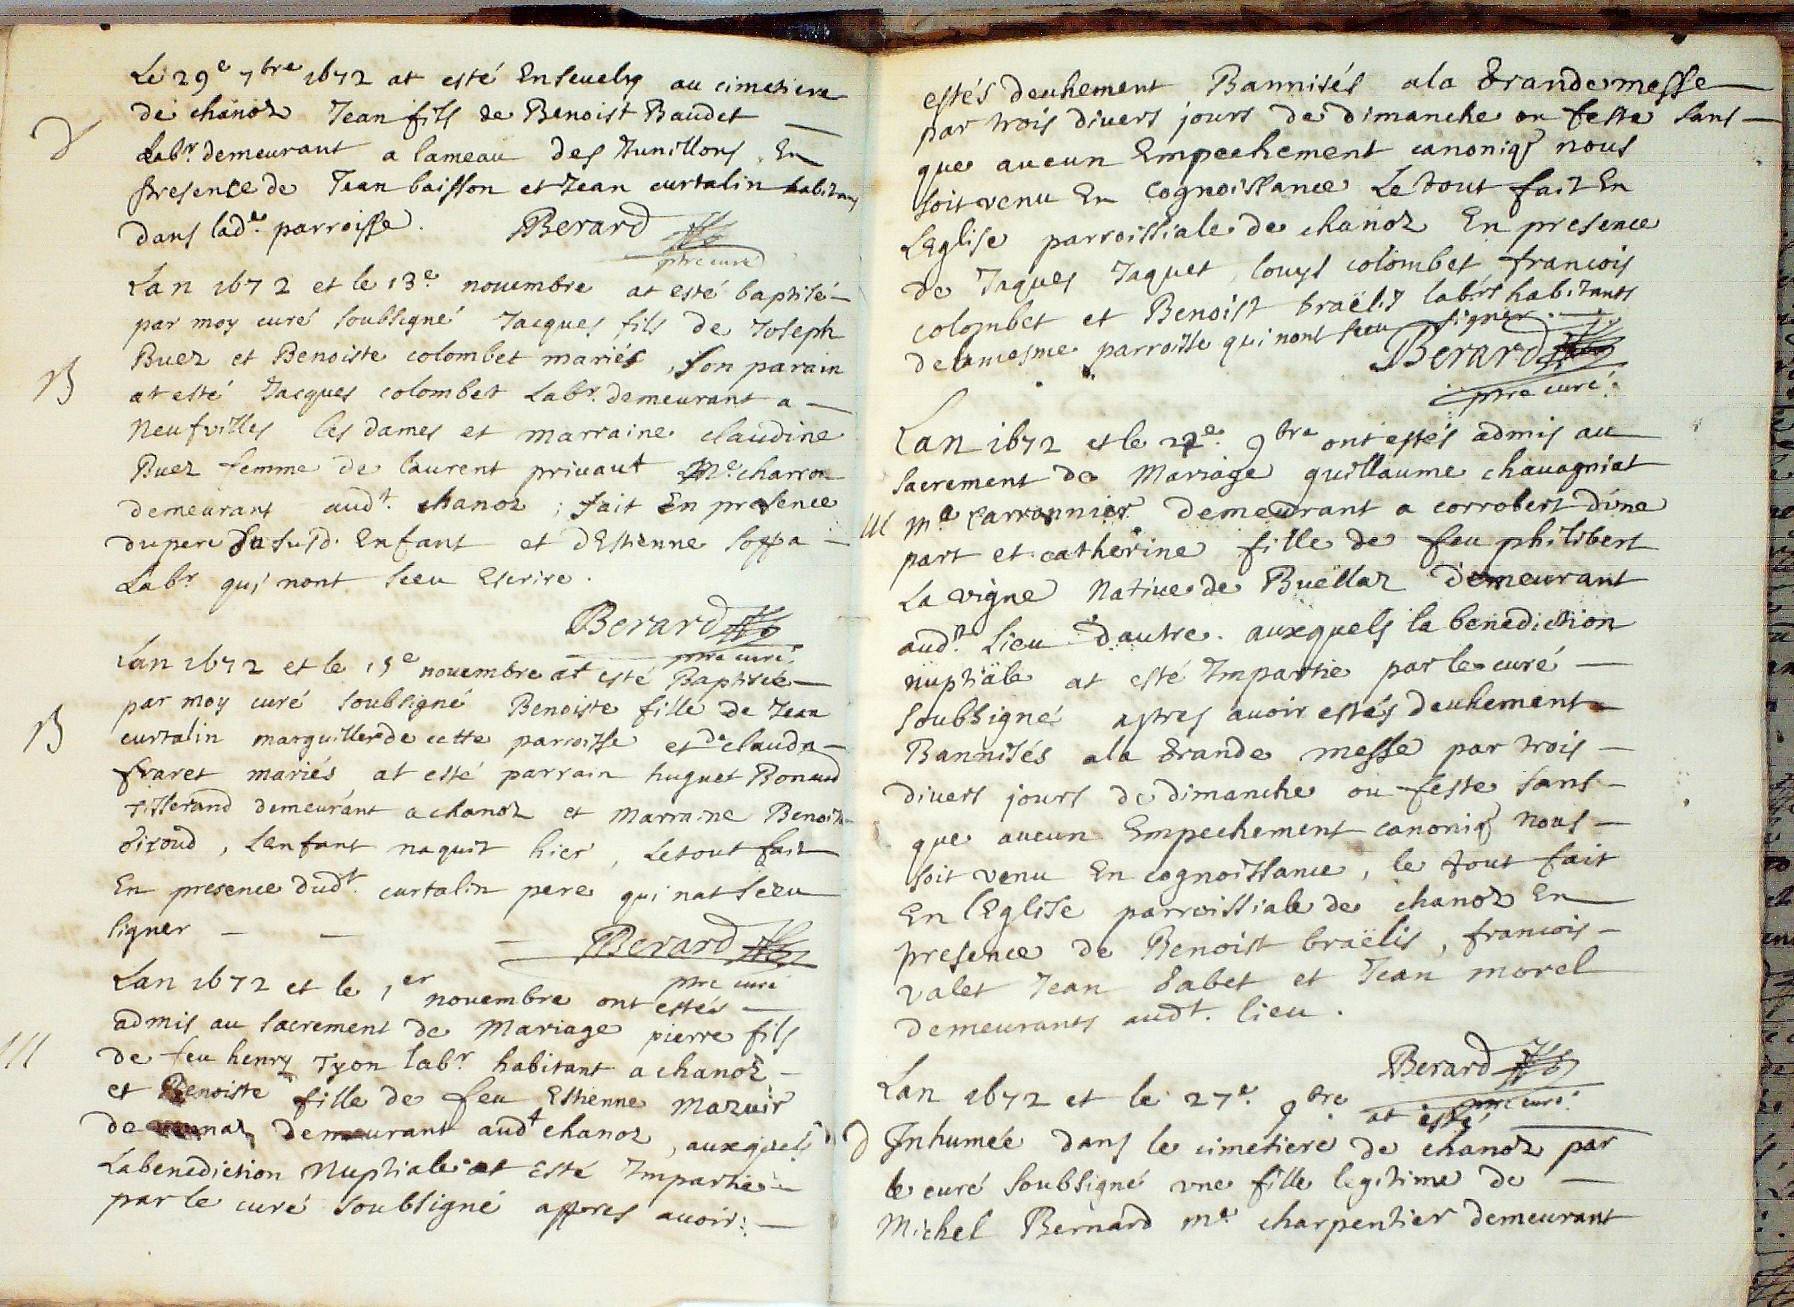 Le 29e 7bre 1672 at esté Ensevely au cimetiere
de chanoz Jean fils de Benoist Baudet
d
Labr. demeurant a lameau des Junillons En
presence de Jean baisson et Jean curtalin habitans
dans lade. parroisse. Berard
ptre curé
Lan 1672 et le 13e. novembre at esté baptisé
par moy curé soubsigné Jacques fils de Joseph
B
Buez et Benoiste colombet mariés, son parain
at esté Jacques colombet Labr. demeurant a
Neufvilles les dames et marraine claudine
Buez femme de laurent privaut Me charron
demeurant audt. chanoz ; fait En presence
du pere du susd. Enfant et dEstienne
Labr qui nont sceu Escrire.
Berard
ptre curé
Lan 1672 et le 15e novembre at esté Baptisée
par moy curé soubsigné Benoiste fille de Jean
B
curtalin marguiller de cette parroisse et de clauda
fraret mariés at esté parrain huguet Bonaud
tisserand demeurant a chanoz et marraine Benoite
Giroud, lenfant naquit hier, Le tout fait
En presence dudt. curtalin pere qui nat sceu
signer Berard
ptre curé
Lan 1672 et le 1er novembre ont estés
admis au sacrement de Mariage pierre fils
M
de feu henry Tyon labr habitant a chanoz
et Benoiste fille de feu Estienne Mazuir
de demeurant audt chanoz, auxquels
La benediction Nuptiale at Esté Impartie
par le curé soubsigné apres avoir
estés deuhement Bannisés a la Grande messe
par trois divers jours de dimanche ou feste sans
que aucun Empechement canoniq nous
soit venu En cognoissance Le tout fait En
LEglise parroissiale de chanoz En presence
de Jaques Jaquet, louys colombet, francois
colombet et Benoist braëlis labrs habitants
de la mesme parroisse qui nont sceu signer
Berard
ptre curé.
Lan 1672 et le 22e. 9bre ont estés admis au
sacrement de Mariage guillaume chavagniat
M me carronnier demeurant a corrobert dune
part et catherine fille de feu philibert
La vigne Native de Buëllaz demeurant
audt. lieu dautre. auxquels la benediction
nuptiale at esté Impartie par le curé
soubsigné apres avoir estés deuhement
Bannisés a la Grande messe par trois
divers jours de dimanche ou feste sans
que aucun Empechement canoniq nous
soit venu En cognoissance, le tout fait
En lEglise parroissiale de chanoz En
presence de Benoist braëlis, francois
valet Jean Gabet et Jean morel
demeurants audt. lieu.
Berard
ptre curé.
Lan 1672 et le 27e. 9bre at esté
d Inhumée dans le cimetiere de chanoz par
le curé soubsigné une fille legitime de
Michel Bernard me. charpentier demeurant